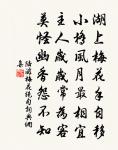 湖上梅花手自移
小橋風月最相宜
主人歲歲常為客
莫怪幽香怨不知
陸游梅花絕句